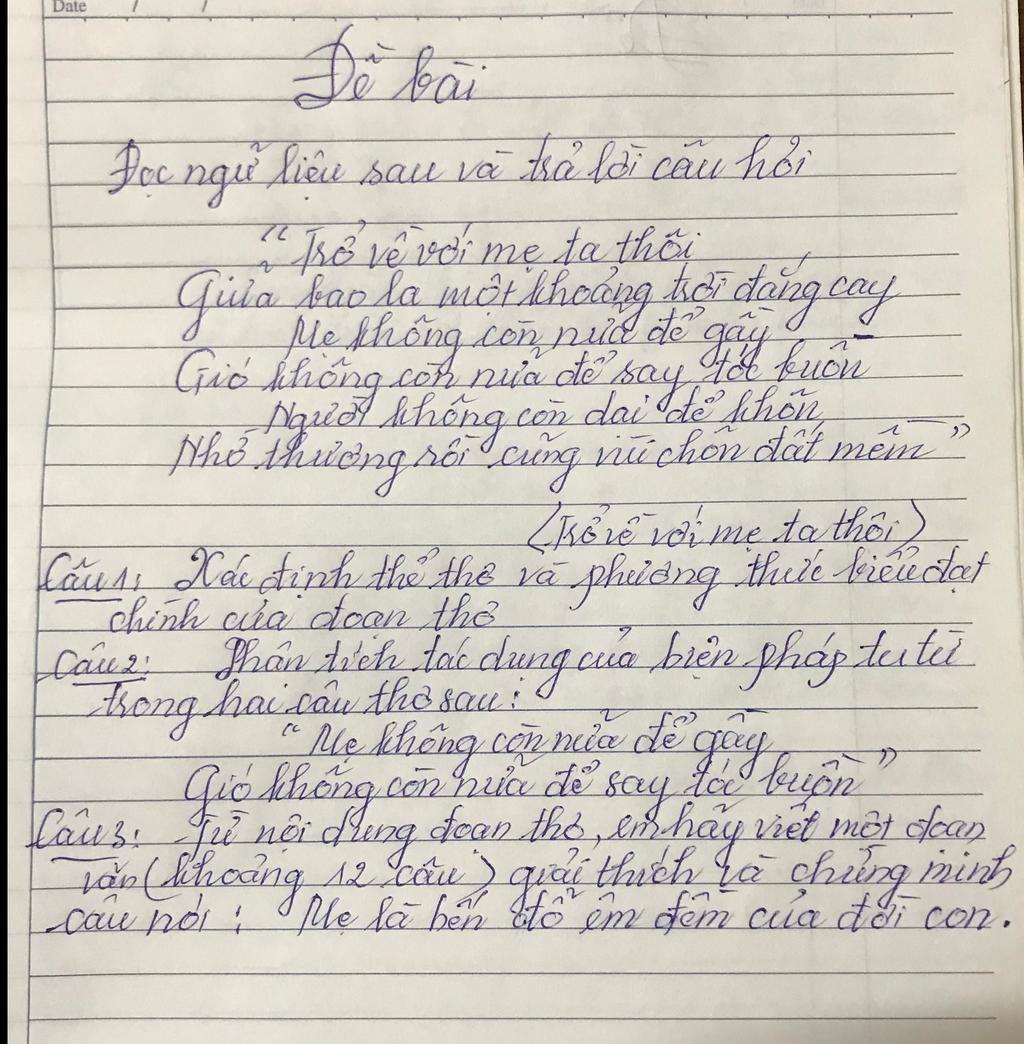 Date / /
Đề bài
Đọc ngữ liệu sau và trả lời câu hỏi
"Trở về với mẹ ta thôi
Giữa bao la một khoảng trời đắng cay
Mẹ không còn nữa để gầy
Gió không còn nữa để say tóc buồn
Người không còn dại để khôn
Nhớ thương rồi cũng vùi chôn đất mềm"
(Trở về với mẹ ta thôi)
Câu 1: Xác định thể thơ và phương thức biểu đạt
chính của đoạn thơ
Câu 2: Phân tích tác dụng của biện pháp tu từ
trong hai câu thơ sau:
"Mẹ không còn nữa để gầy
Gió không còn nữa để say tóc buồn"
Câu 3: Từ nội dung đoạn thơ, em hãy viết một đoạn
văn (khoảng 12 câu) giải thích và chứng minh
câu nói: Mẹ là bến đỗ êm đềm của đời con.